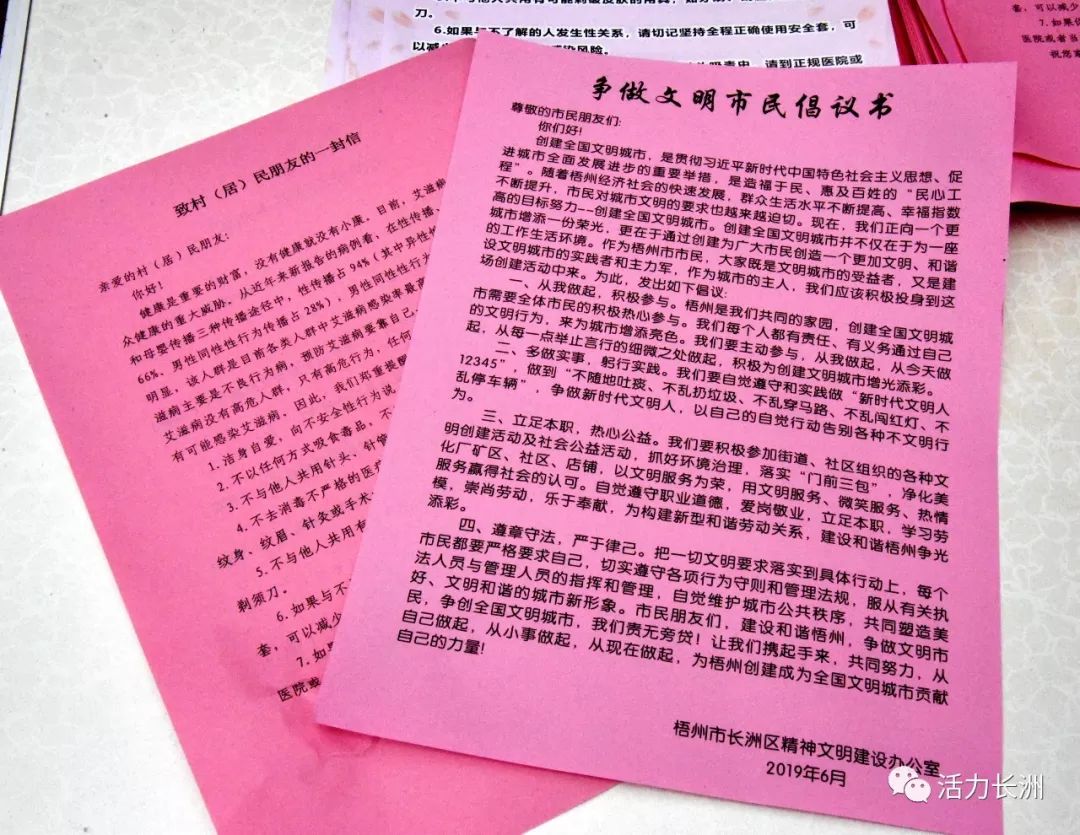 6.如果与不了解的人发生性关系，请切记坚持全程正确使用安全套，可
吸毒史，请到正规医院或
套，可以减少
7.如果
医院或者当
致村（居）民朋友的一封信
亲爱的村（居）民朋友：
你好！
健康是重要的财富，没有健康就没有小康。目前，艾滋病
众健康的重大威胁。从近年来新报告的病例看，在性传播
和母婴传播三种传播途径中，性传播占94%（其中异性
66%、男性同性性行为传播占28%），男性同性性行为
明显，该人群是目前各类人群中艾滋病感染率最
滋病主要是不良行为病，预防艾滋病要靠自己
艾滋病没有高危人群，只有高危行为，任何
有可能感染艾滋病。因此，我们郑重提醒
1.洁身自爱，向不安全性行为说
2.不以任何方式吸食毒品，不
3.不与他人共用针头、针管
4.不去消毒不严格的医疗
纹身、纹眉、针灸或手术
5.不与他人共用有
剃须刀。
6.如果与不
套，可以减少
7.如果
医院或
争做文明市民倡议书
尊敬的市民朋友们：
你们好！
创建全国文明城市，是贯彻习近平新时代中国特色社会主义思想、促
进城市全面发展进步的重要举措，是造福于民、惠及百姓的“民心工
程”。随着梧州经济社会的快速发展，群众生活水平不断提高、幸福指数
不断提升，市民对城市文明的要求也越来越迫切。现在，我们正向一个更
高的目标努力--创建全国文明城市。创建全国文明城市并不仅在于为一座
城市增添一份荣光，更在于通过创建为广大市民创造一个更加文明、和谐
的工作生活环境。作为梧州市市民，大家既是文明城市的受益者，又是建
设文明城市的实践者和主力军，作为城市的主人，我们应该积极投身到这
场创建活动中来。为此，发出如下倡议：
一、从我做起，积极参与。梧州是我们共同的家园，创建全国文明城
市需要全体市民的积极热心参与。我们每个人都有责任、有义务通过自己
的文明行为，来为城市增添亮色。我们要主动参与，从我做起，从今天做
起，从每一点举止言行的细微之处做起，积极为创建文明城市增光添彩。
二、多做实事，躬行实践。我们要自觉遵守和实践做“新时代文明人
12345”，做到“不随地吐痰、不乱扔垃圾、不乱穿马路、不乱闯红灯、不
乱停车辆”，争做新时代文明人，以自己的自觉行动告别各种不文明行
为。
三、立足本职，热心公益。我们要积极参加街道、社区组织的各种文
明创建活动及社会公益活动，抓好环境治理，落实“门前三包”，净化美
化厂矿区、社区、店铺，以文明服务为荣，用文明服务、微笑服务、热情
服务赢得社会的认可。自觉遵守职业道德，爱岗敬业，立足本职，学习劳
模，崇尚劳动，乐于奉献，为构建新型和谐劳动关系，建设和谐梧州争光
添彩。
四、遵章守法，严于律己。把一切文明要求落实到具体行动上，每个
市民都要严格要求自己，切实遵守各项行为守则和管理法规，服从有关执
法人员与管理人员的指挥和管理，自觉维护城市公共秩序，共同塑造美
好、文明和谐的城市新形象。市民朋友们，建设和谐梧州，争做文明市
民，争创全国文明城市，我们责无旁贷！让我们携起手来，共同努力，从
自己做起，从小事做起，从现在做起，为梧州创建成为全国文明城市贡献
自己的力量！
梧州市长洲区精神文明建设办公室
2019年6月
活力长洲